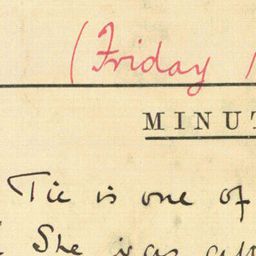 (Friday
MINUT
Tie is one of
She was